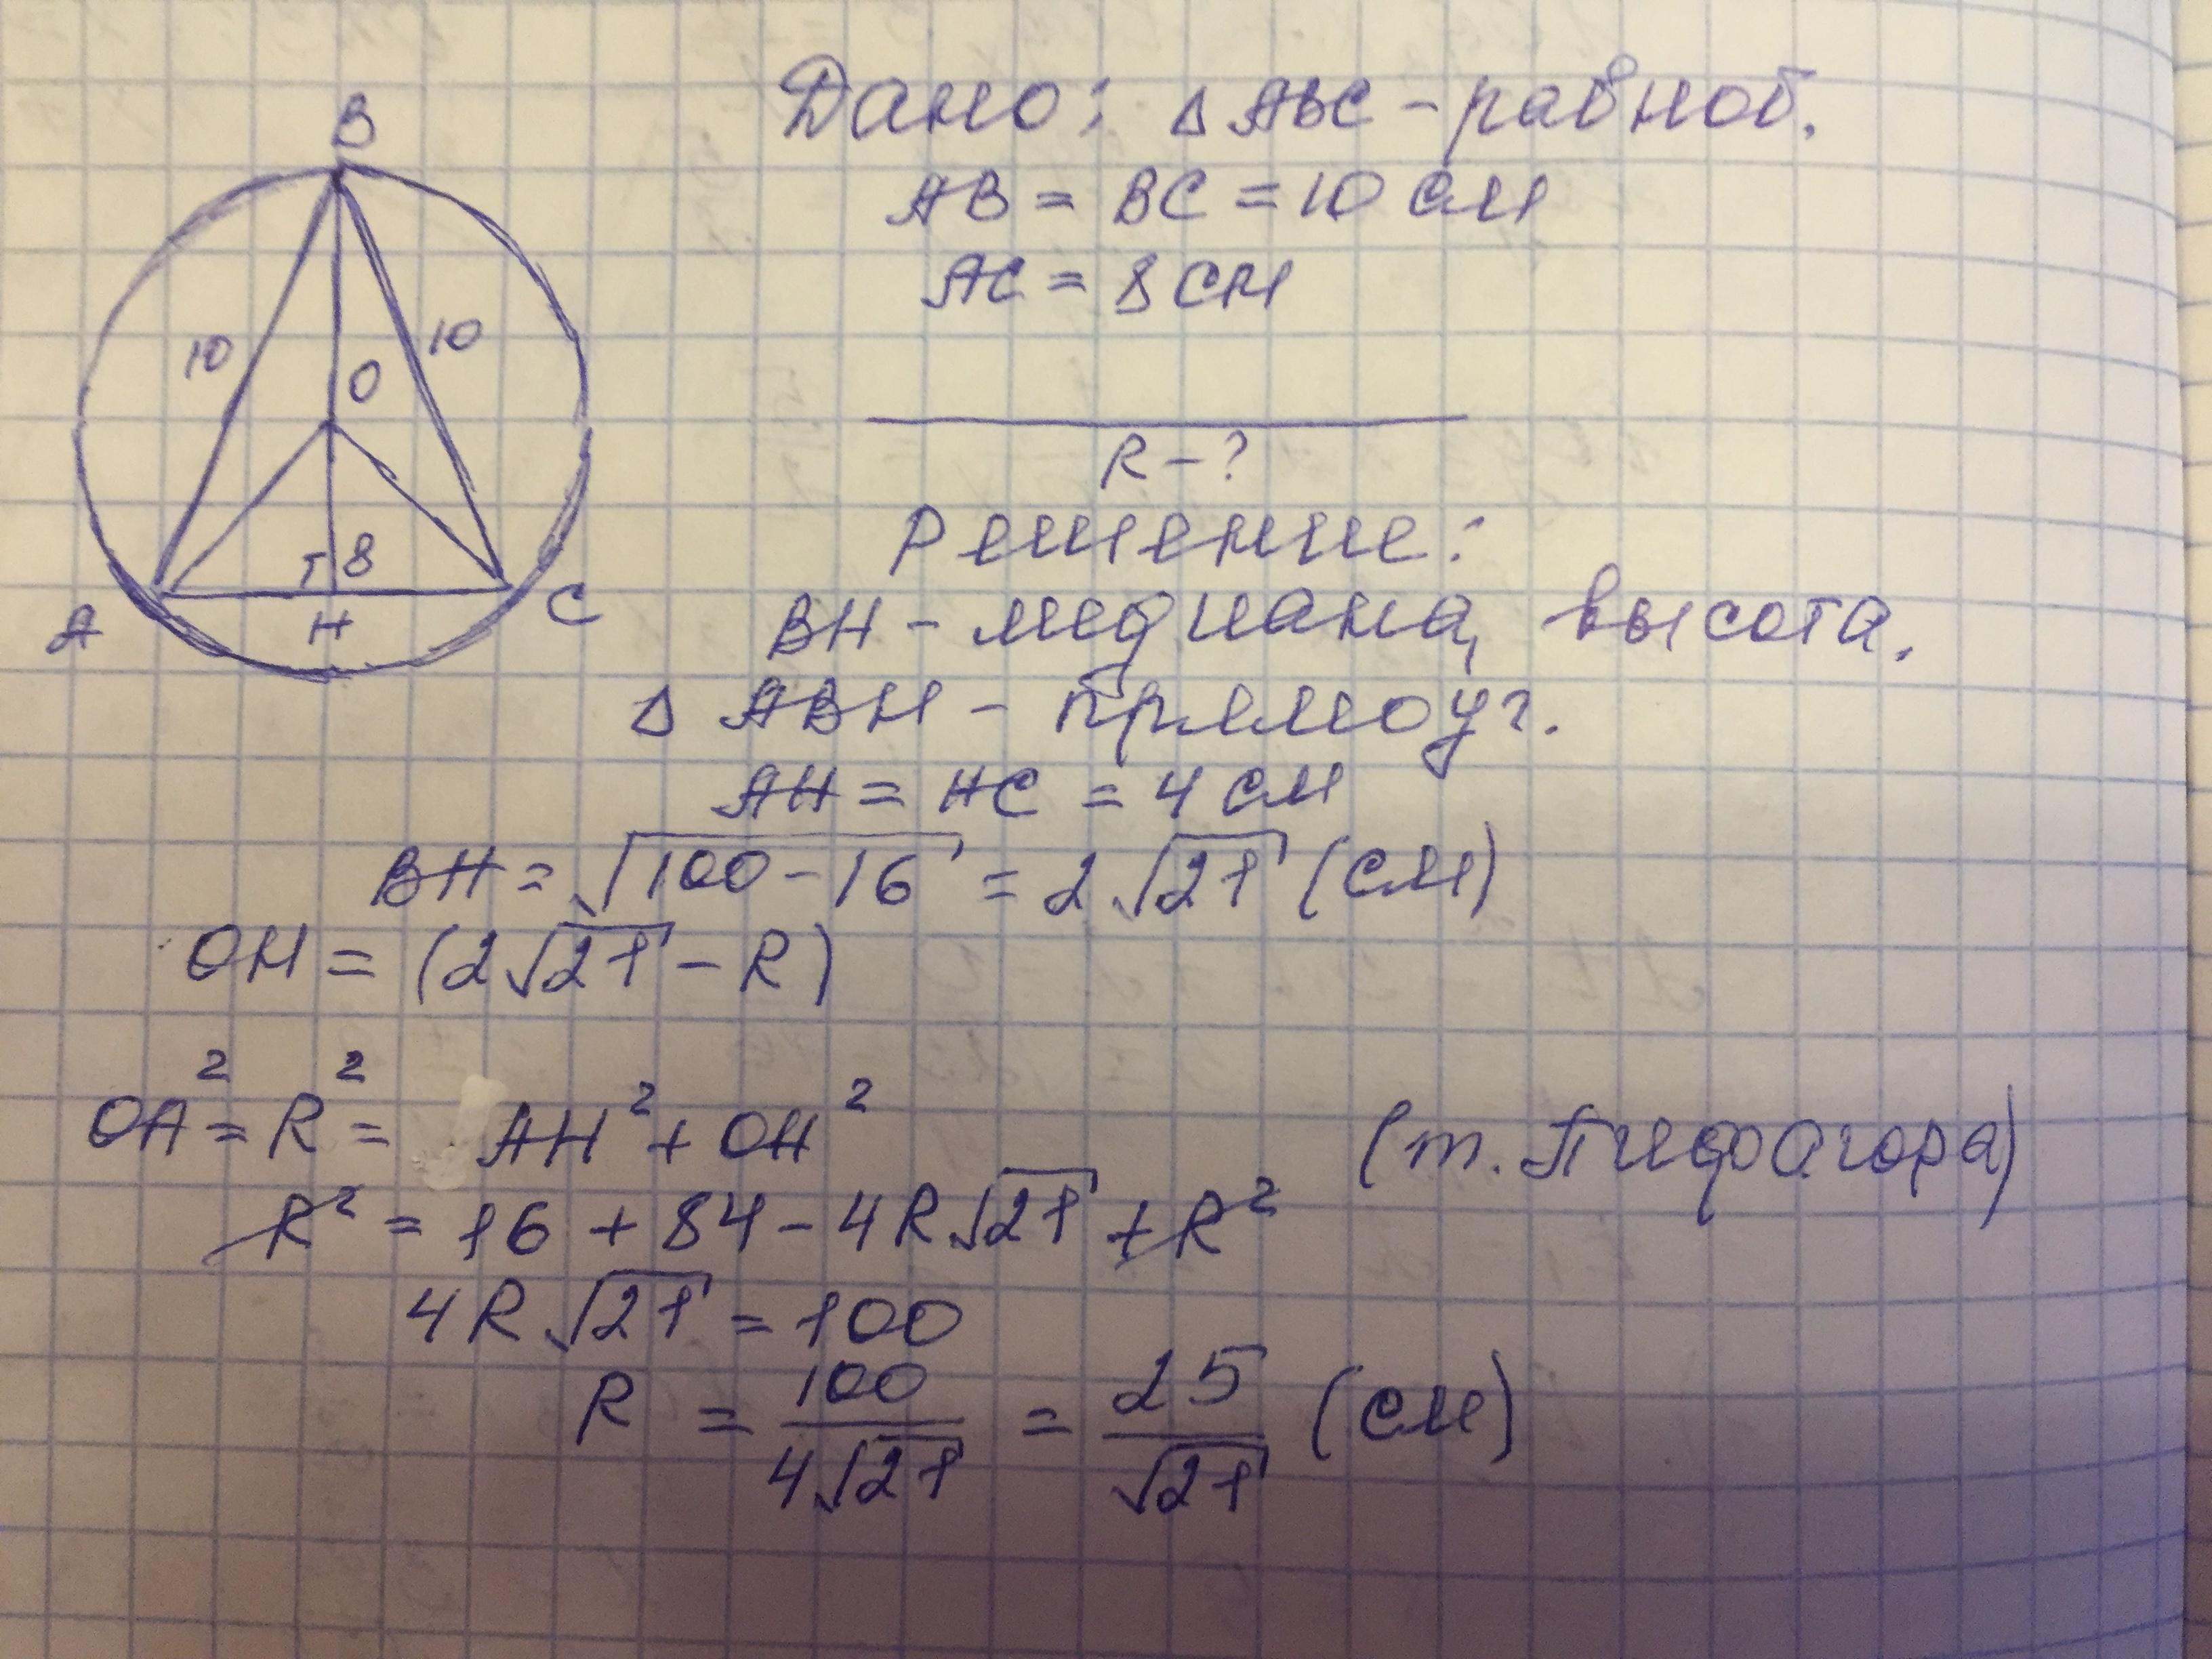 B
10
10
O
8
A
H
C
Дано: △ ABC - равноб.
AB = BC = 10 см
AC = 8 см
R - ?
Решение:
BH - медиана, высота.
△ ABH - прямоуг.
AH = HC = 4 см
BH = √100 - 16 = 2√21 (см)
OH = (2√21 - R)
OA² = R² = AH² + OH² (т. Пифагора)
R² = 16 + 84 - 4R√21 + R²
4R√21 = 100
R = 100/4√21 = 25/√21 (см)